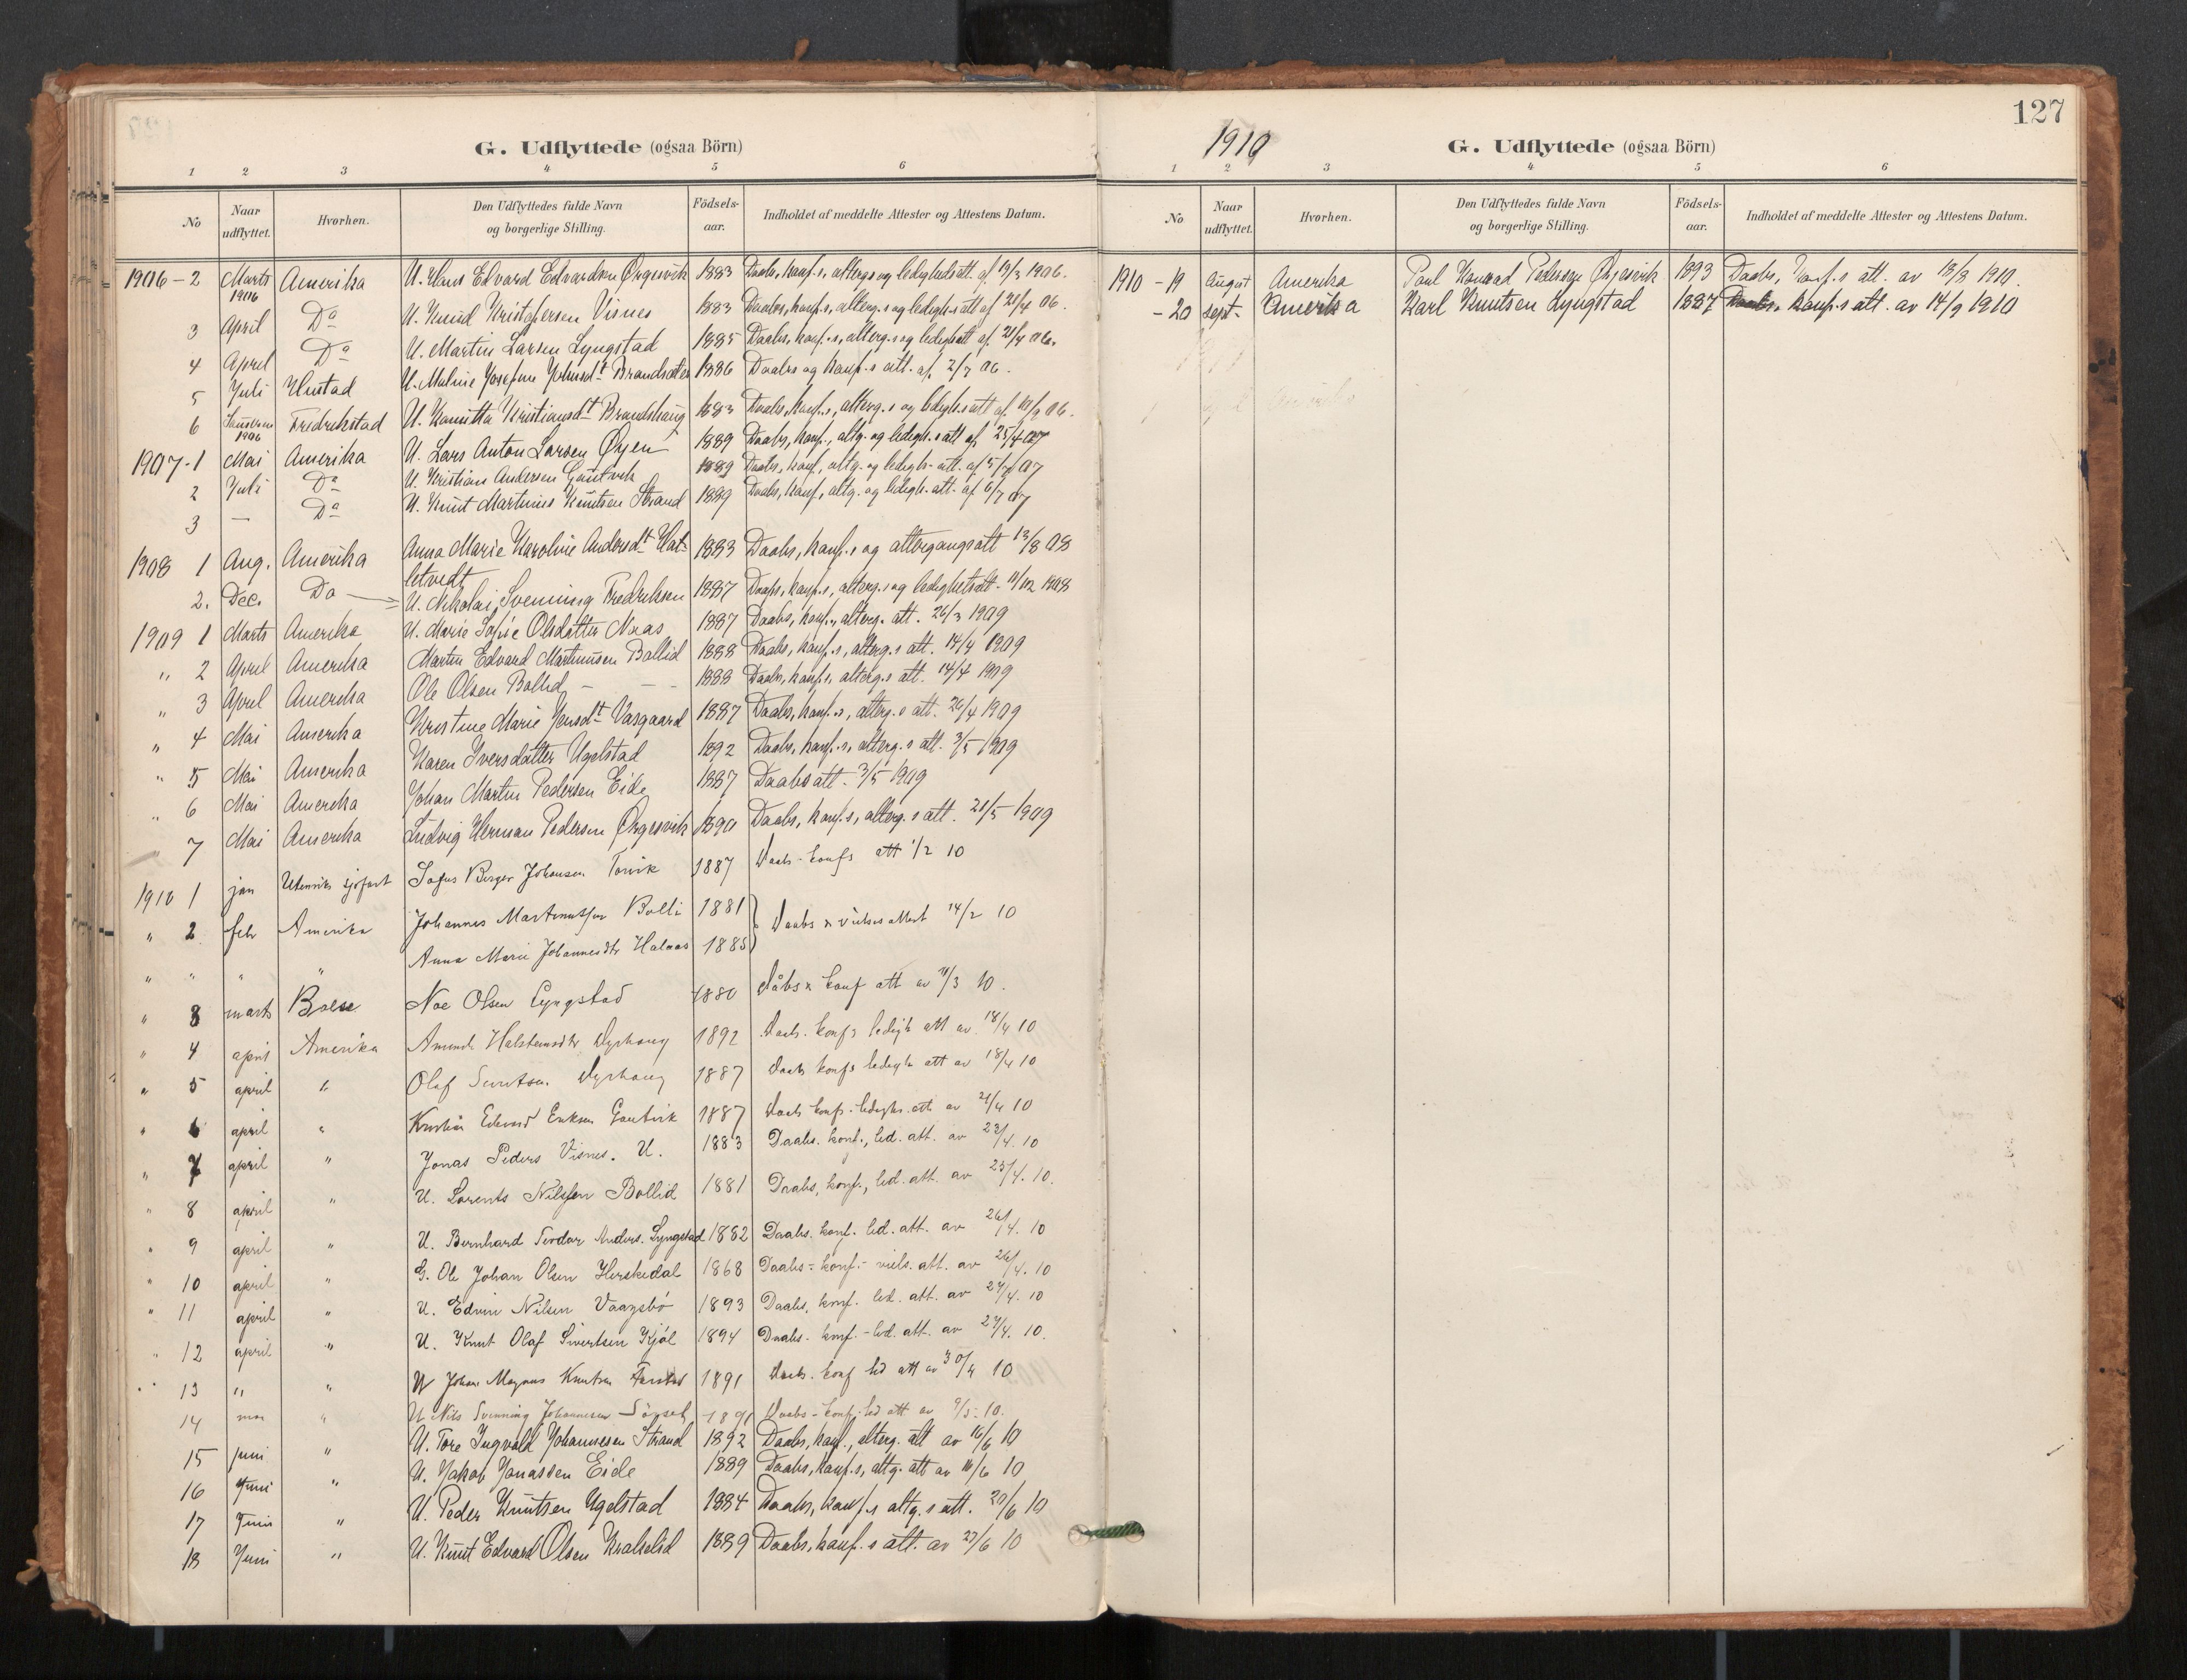 G. Udflyttede (ogsaa Börn)
1 2 3 4 5 6
No Naar udflyttet. Hvorhen. Den Udflyttedes fulde Navn og borgerlige Stilling. Födsels-aar. Indholdet af meddelte Attester og Attestens Datum.
1906 - 2 Marts 1906 Amerika U. Hans Edvard Edvardsen Örgesvik 1883 Daabs, konf.s, alterg.s og ledighedsatt. af 19/3 1906.
3 April Do U. Knud Kristofersen Visnes 1883 Daabs, konf.s, alterg.s og ledigh.s att af 21/4 06.
4 April Do U. Martin Larsen Lyngstad 1885 Daabs, konf.s, alterg.s og ledighatt af 21/4 06.
5 Juli Hustad U. Maline Josefine Johnsdt Brandsæter 1886 Daabs og konf.s att. af 2/7 06.
6 1906 Fredrikstad U. Kristiansdt Brandshaug 1883 Daabs, konf.s, alterg.s og ledigh.s att af 06.
1907 - 1 Mai Amerika U. Lars Anton Larsen Öyen 1889 Daabs, konf., altg. og ledigh.s att af 25/4 07
2 Juli Do U. Kristian Andersen Gautvik 1889 Daabs, konf., altg. og ledigh. att. af 5/7 07
3 — Do U. Knut Martinius Knutsen Strand 1889 Daabs, konf., altg. og ledigh. att. af 6/7 07
1908 1 Aug. Amerika Anna Marie Karoline Andersdt Hat-
letvedt 1883 Daabs, konf.s og altergangsatt 13/8 08
2. Dec. Do U. Nikolai Svenning Fredriksen 1887 Daabs, konf.s, alterg.s og ledighetsatt. 11/12 1908
1909 1 Marts Amerika U. Marie Sofie Olsdatter Naas 1887 Daabs, konf., alterg. att. 26/3 1909
" 2 April Amerika Martin Edvard Martinusen Bollid 1888 Daabs, konf.s, alterg.s att. 14/4 1909
" 3 April Amerika Ole Olsen Bollid - - - 1888 Daabs, konf.s, alterg.s att. 14/4 1909
" 4 Mai Amerika Kristine Marie Jensdt Vasgaard 1887 Daabs, konf.s, alterg.s att. 26/4 1909
" 5 Mai Amerika Karen Iversdatter Ugelstad 1892 Daabs, konf.s, alterg.s att. 3/5 1909
" 6 Mai Amerika Johan Martin Pedersen Eide 1887 Daabsatt. 3/5 1909
" 7 Mai Amerika Ludvig Herman Pedersen Örgesvik 1890 Daabs, konf.s, alterg.s att. 21/5 1909
1910 1 jan Utenriks sjöfart Sofus Birger Johansen Torvik 1887 Daab- konfs att 1/2 10
" 2 febr Amerika Johannes Martinussen Bolli 1881 Daabs & vielses attest 14/2 10
" " " " Anna Marie Johannesdtr Halaas 1885
" 3 marts Bolsø Noe Olsen Lyngstad 1880 Dåbs & konf att av 11/3 10.
" 4 april Amerika Halstensdtr Dyrhaug 1892 Daab. konfs ledigh att av 18/4 10
" 5 april " Olaf Dyrhaug 1887 Daab konfs ledigh att av 18/4 10
" 6 april " Kristian Edvard Eriksen Gautvik 1887 Daab konfs - ledighs. att av 21/4 10
" 7 april " Jonas Peders Visnes. U. 1883 Daabs. konf., led. att. av 23/4. 10
" 8 april " U. Lorents Nilssen Bollid 1881 Daabs, konf., led. att. av 25/4. 10.
" 9 april " U. Bernhard Anders. Lyngstad 1882 Daabs. konf. led. att. av 26/4. 10
" 10 april " G. Ole Johan Olsen Herskedal 1868 Daabs- konf.- viels. att. av 26/4. 10
" 11 april " U. Edvin Nilsen Vaagsbö 1893 Daabs, konf. led. att. av 27/4. 10
" 12 april " U. Knut Olaf Sivertsen Kjöl 1894 Daabs. konf.- led. att. av 27/4. 10.
" 13 " " U Johan Magnus Knutsen Farstad 1891 Daab. konf led att av 30/4 10
14 mai " U Nils Svenning Johannesen 1891 Daabs- konf. led att av 9/5. 10.
15 juni " U. Tore Ingvald Johannesen Strand 1892 Daabs, konf., alterg. att av 16/6 10
16 Juni " U. Jakob Jonassen Eide 1889 Daabs, konf.s, altg. att av 16/6 10
17 Juni " U. Peder Knutsen Ugelstad 1884 Daabs, konf.s altg.s att. 20/6 10
18 Juni " U. Knut Edvard Olsen 1889 Daabs, konf.s att. av 27/6 10
127
1910
G. Udflyttede (ogsaa Börn)
1 2 3 4 5 6
No Naar udflyttet. Hvorhen. Den Udflyttedes fulde Navn og borgerlige Stilling. Födsels-aar. Indholdet af meddelte Attester og Attestens Datum.
1910 - 19 August Amerika Paul Konrad Pedersen Örgesvik 1893 Daabs, konf.s att. av 18/8 1910.
- 20 sept. Amerika Karl Knutsen Lyngstad 1887 Daabs. konf.s att. av 14/9 1910